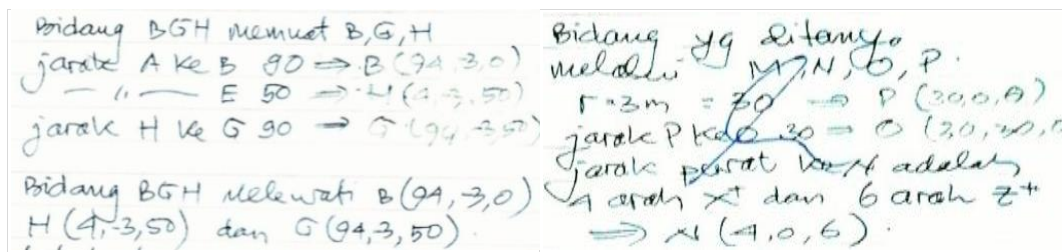 Bidang BGH memuat B, G, H
jarak A ke B 90 ⇒ B (94, -3, 0)
— " — E 50 ⇒ H (4, -3, 50)
jarak H ke G 90 → G (94, -3, 50)
Bidang BGH melewati B (94, -3, 0)
H (4, -3, 50) dan G (94, -3, 50).
Bidang yg ditanya
melalui M, N, O, P.
r = 3 m = 30 → P (30, 0, 0)
jarak P ke O 30 = O (30, 30, 0
jarak pusat ke N adalah
4 arah x⁺ dan 6 arah z⁺
⇒ N (4, 0, 6).